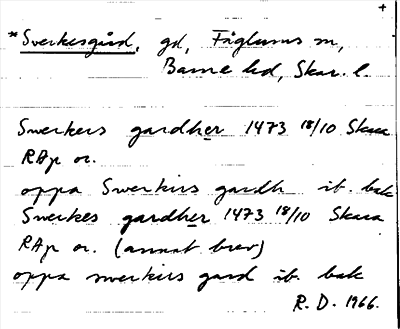 +
*Sverkesgård, gd, Fåglums sn,
Barne hd, Skar. l.
Swerkers gardher 1473 18/10 Skara
RAp or.
oppa Swerkirs gardh ib. bak
Swerkes gardher 1473 18/10 Skara
RAp or. (annat brev)
oppa swerkirs gard ib. bak
R. D. 1966.